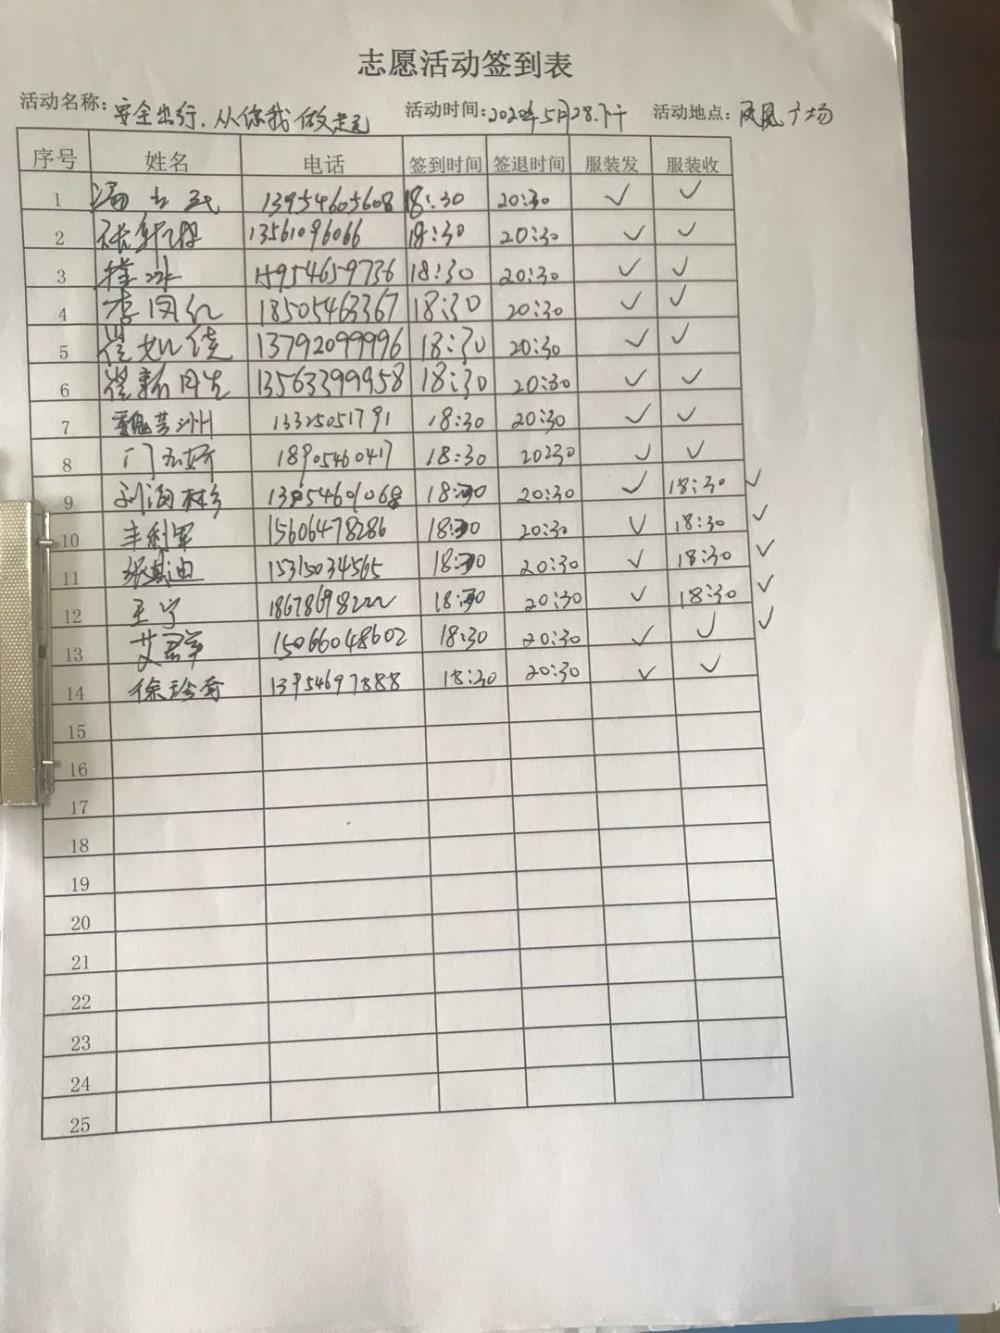 志愿活动签到表
活动名称: 安全出行.从你我做起 活动时间: 2020年5月28.下午 活动地点: 凤凰广场
序号 姓名 电话 签到时间 签退时间 服装发 服装收
1 13954605608 18:30 20:30 ✓ ✓
2 13561096066 18:30 20:30 ✓ ✓
3 15954659736 18:30 20:30 ✓ ✓
4 李凤仁 18505463367 18:30 20:30 ✓ ✓
5 崔如倩 13792099996 18:30 20:30 ✓ ✓
6 13563399958 18:30 20:30 ✓ ✓
7 魏芳洲 13325051791 18:30 20:30 ✓ ✓
8 18905460417 18:30 20230 ✓ ✓
9 刘海彬 18:30 20:30 ✓ 18:30 ✓
10 丰利军 15606478286 18:30 20:30 ✓ 18:30 ✓
11 张其迪 15315034565 18:30 20:30 ✓ 18:30 ✓
12 王宁 18678698222 18:30 20:30 ✓ 18:30 ✓
13 艾群 15066048602 18:30 20:30 ✓ ✓ ✓
14 徐玲奇 13954697888 18:30 20:30 ✓ ✓
15
16
17
18
19
20
21
22
23
24
25